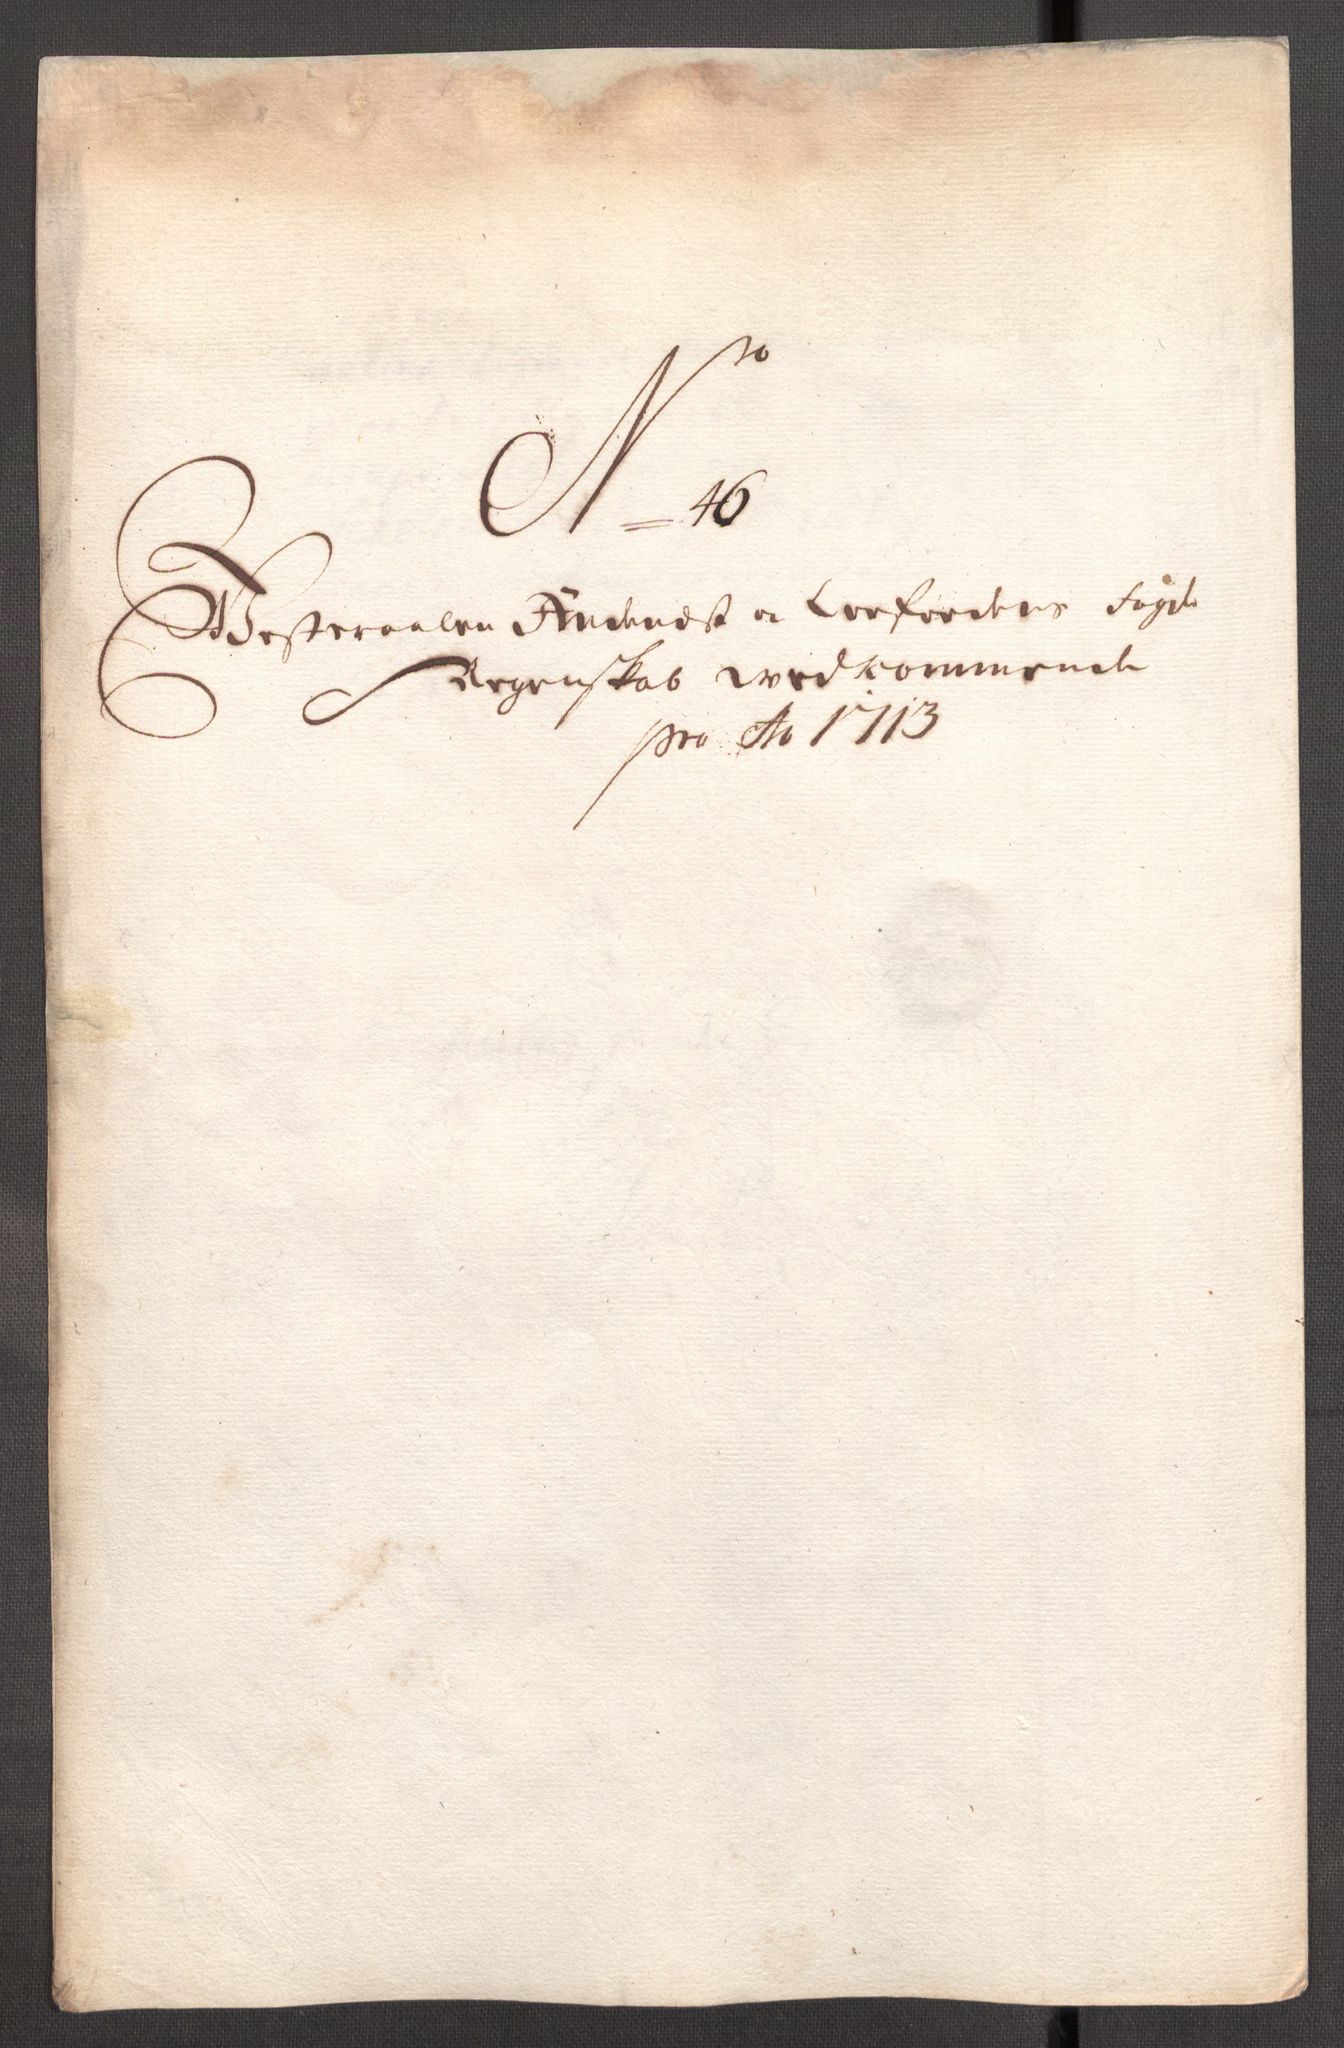 No
46
Westeraalen Andenes og Lofodens Fogde
Regenskab wedkommende
pro Ao 1713